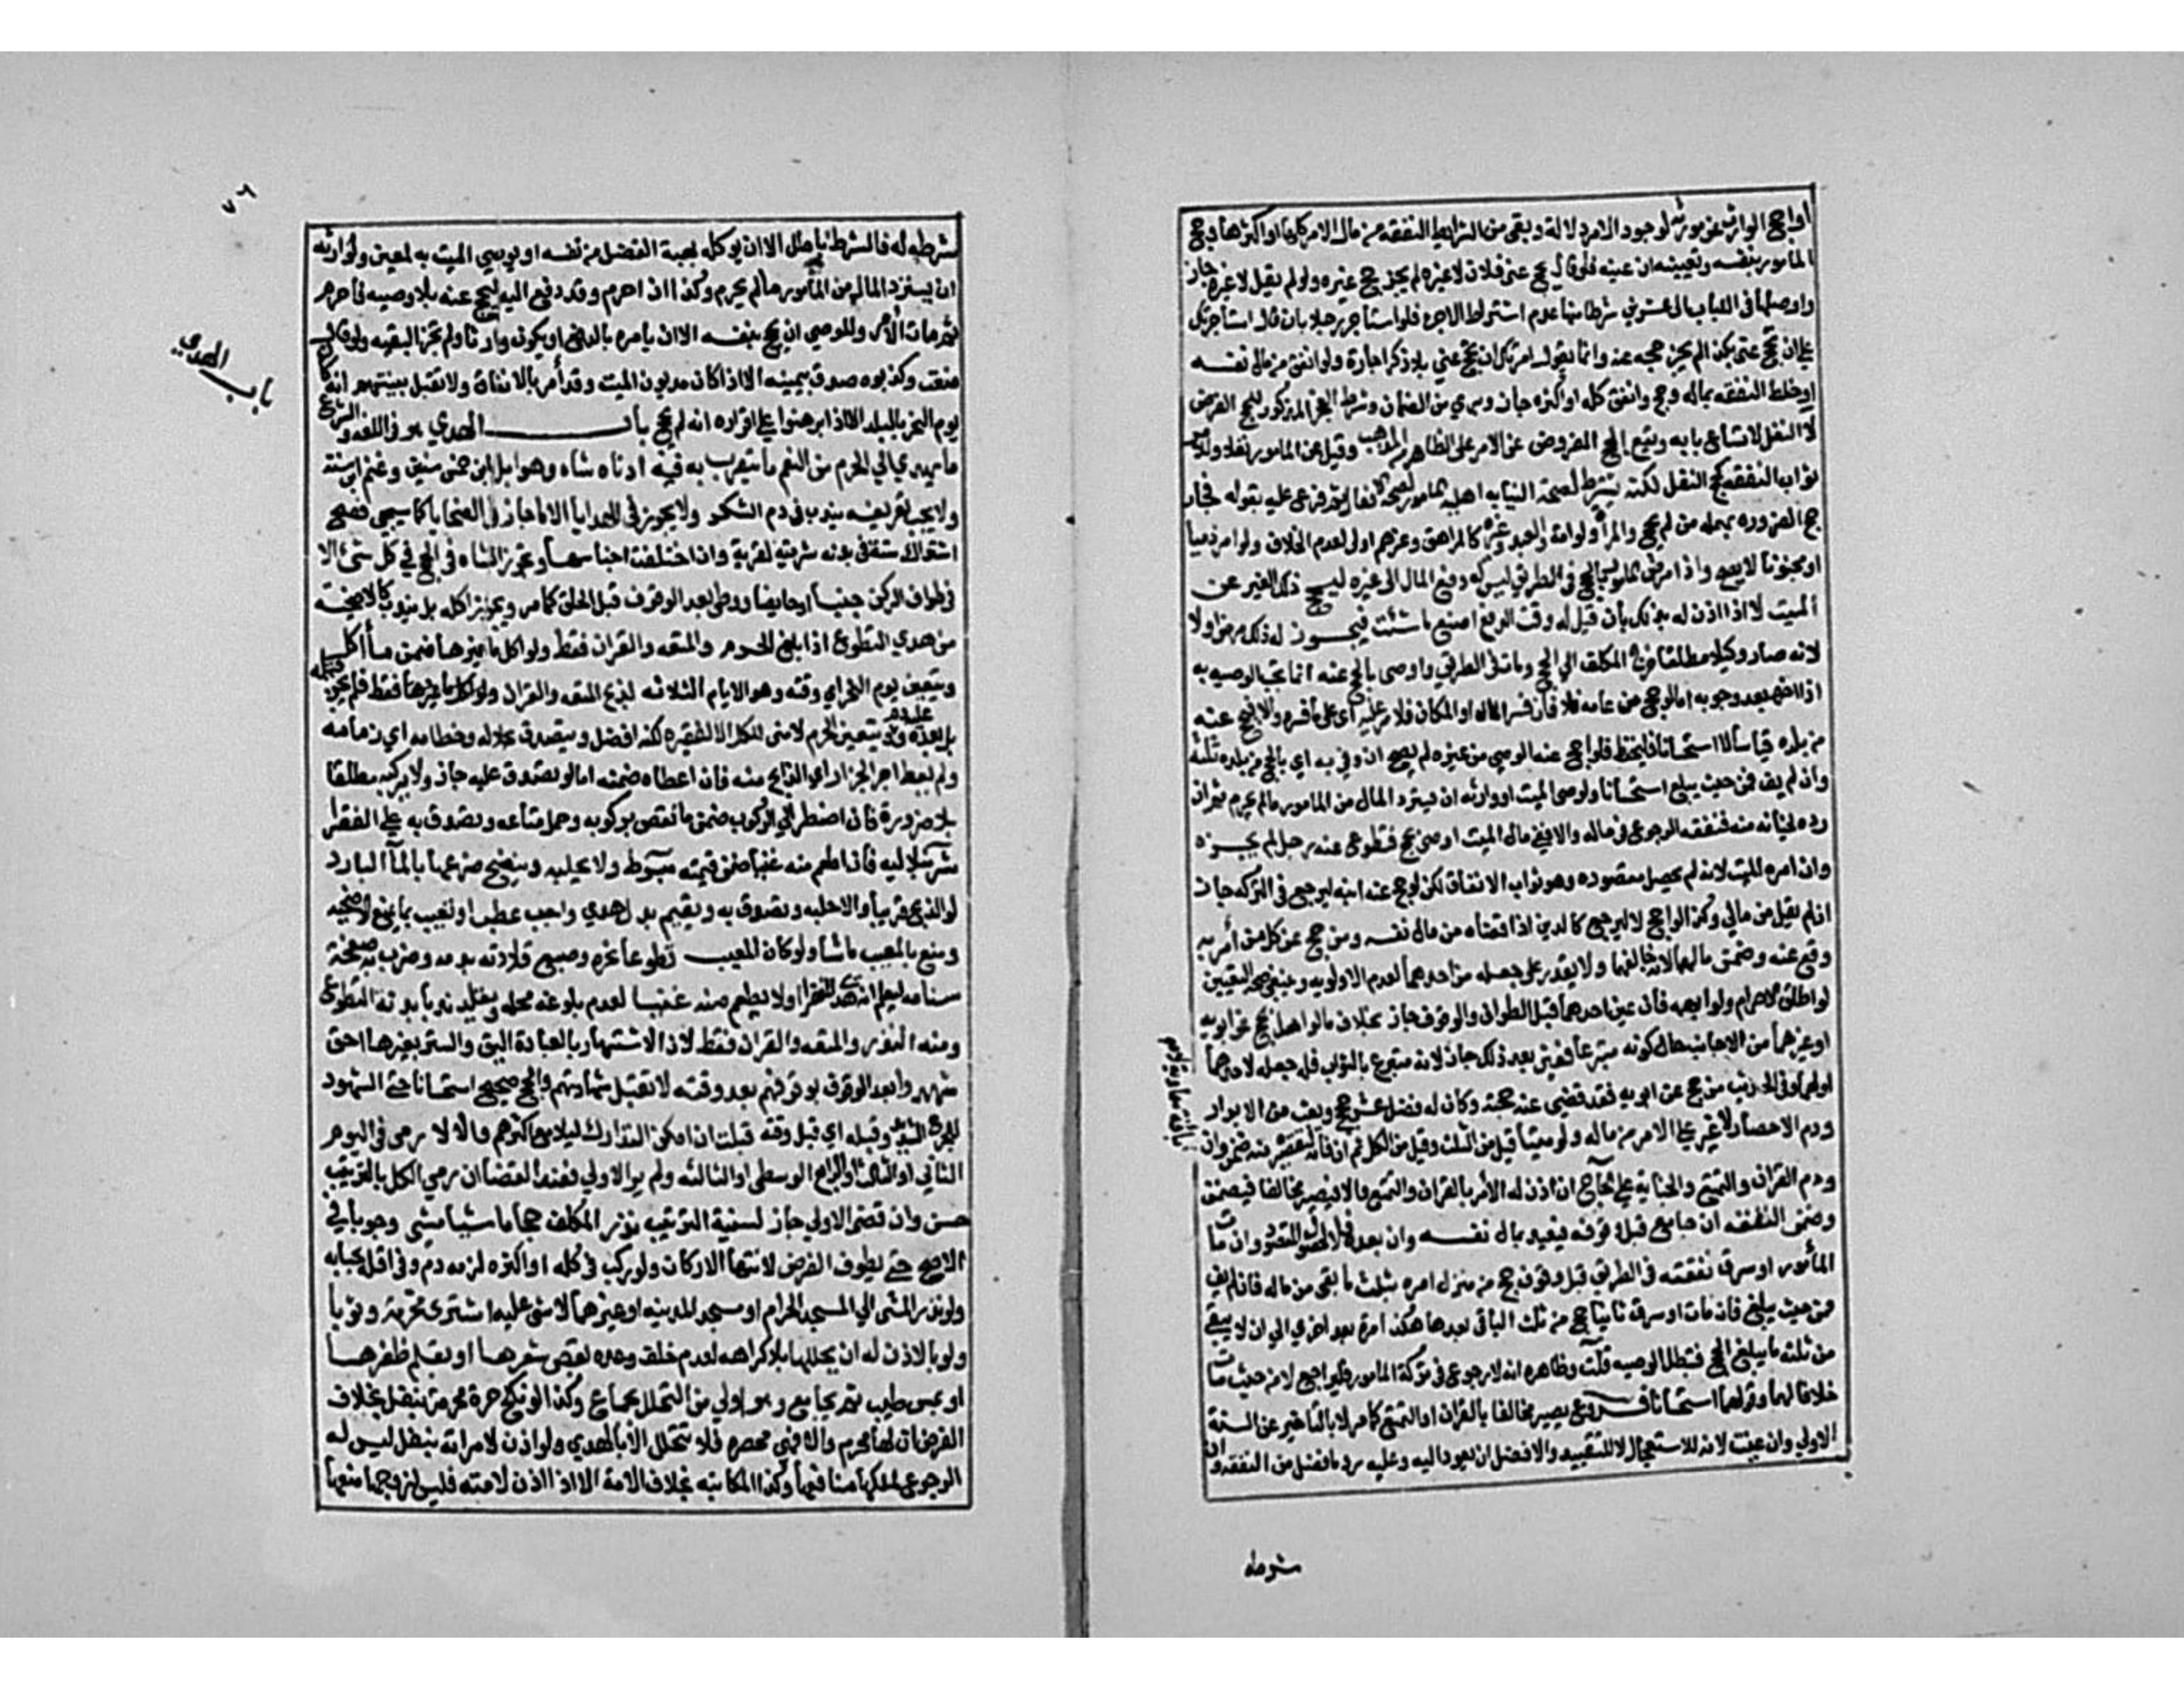 او حج الوارث عن مورثه لوجود الامر دلالة وبقي من الشرايط النفقة من مال الامر كلها او اكثرها وحج
المامور بنفسه وتعيينه ان عينه فلو قال يحج عني فلان لا غيره لم يجز حج غيره ولو لم يقل لا غيره جاز
واوصلها في اللباب الى عشرين شرطا منها عدم اشتراط الاجرة فلو استأجر رجلا بان قال استأجرتك
على ان تحج عني بكذا لم يجز حجه عنه وانما يقول امرتك ان تحج عني بلا ذكر اجارة ولو انفق من مال نفسه
او خلط النفقة بماله وحج وانفق كله او اكثره جاز وبري من الضمان وشرط العجز المذكور للحج الفرض
لا النفل لاتساع بابه ويقع الحج المفروض عن الامر على الظاهر من المذهب وقيل عن المامور نفلا وللامر
ثواب النفقة كحج النفل لكنه يشترط لصحة النيابة اهلية المامور لصحة الافعال ثم فرع عليه بقوله فجاز
حج الصرورة بمهملة من لم يحج والمرأة ولو امة والعبد وغيره كالمراهق وغيرهم اولى لعدم الخلاف ولو امر ذميا
او مجنونا لا يصح واذا مرض المامور بالحج في الطريق ليس له دفع المال الى غيره ليحج ذلك الغير عن
الميت لا اذا اذن له بذلك بأن قيل له وقت الدفع اصنع ما شئت فيجوز له ذلك مرض او لا
لانه صار وكيلا مطلقا خرج المكلف الى الحج ومات في الطريق واوصى بالحج عنه انما تجب الوصية به
اذا اخره بعد وجوبه اما لو حج من عامه فلا فان فسر المال او المكان فالامر عليه اي على ما فسره والا فيحج عنه
من بلده قياسا لا استحسانا فليحفظ فلو احج عنه الوصي من غيره لم يصح ان وفى به اي بالحج من بلده ثلثه
وان لم يف فمن حيث يبلغ استحسانا ولوصي الميت او وارثه ان يسترد المال من المامور ما لم يحرم ثم ان
رده لخيانة منه فنفقة الرجوع في ماله والا ففي مال الميت اوصى بحج فتطوع عنه رجل لم يجزه
وان امره الميت لانه لم يحصل مقصوده وهو ثواب الانفاق لكن لو حج عنه ابنه ليرجع في التركة جاز
ان لم يقل من مالي وكذا لو احج لا ليرجع كالدين اذا قضاه من مال نفسه ومن حج عن كل من أمريه
وقع عنه وضمن مالهما لانه خالفهما ولا يقدر على جعله من احدهما لعدم الاولوية وينبغي صحة التعيين
لو اطلق الاحرام ولو ابهمه فان عين احدهما قبل الطواف والوقوف جاز بخلاف ما لو اهل بحج عن ابويه
او غيرهما من الاجانب حال كونه متبرعا فعين بعد ذلك جاز لانه متبرع بالثواب فله جعله لاحدهما
اولهما وفي الحديث من حج عن ابويه فقد قضى عنه حجته وكان له فضل عشر حجج وبعث من الابرار
ودم الاحصار لا غير على الامر من ماله ولو ميتا قيل من الثلث وقيل من الكل ثم ان فاته لتقصير منه ضمن وان
ودم القران والتمتع والجناية على الحاج ان اذن له الامر بالقران والتمتع والا فيصير مخالفا فيضمن
وضمن النفقة ان جامع قبل وقوفه فيعيد بمال نفسه وان بعده فلا لحصول المقصود وان مات
المأمور او سرقت نفقته في الطريق قبل وقوفه حج من منزل امره بثلث ما بقي من ماله فان لم يف
فمن حيث يبلغ فان مات او سرقت ثانيا حج من ثلث الباقي بعدها هكذا مرة بعد اخرى الى ان لا يبقى
من ثلثه ما يبلغ الحج فتبطل الوصية قلت وظاهره انه لا رجوع في تركة المامور فليراجع لا من حيث مات
خلافا لهما وقولهما استحسانا فروع يصير مخالفا بالقران او التمتع كما مر لا بالتأخير عن السنة
الاولى وان عينت لانه للاستعجال لا للتقييد والافضل ان يعود اليه وعليه رد ما فضل من النفقة وان
شرطه
٧٦
باب الهدي
شرطه له فالشرط باطل الا ان يوكله بهبة الفضل من نفسه او يوصي الميت به لمعين ولوارثه
ان يسترد المال من المأمور ما لم يحرم وكذا ان احرم وقد دفع اليه ليحج عنه بلا وصية فاحرم
ثم مات الأمر وللوصي ان يحج بنفسه الا ان يأمره بالدفع او يكون وارثا ولم تجز البقية ولو قال
منعت وكذبوه صدق بيمينه الا اذا كان مديون الميت وقد أمر بالانفاق ولا تقبل بينتهم انه كان
يوم النحر بالبلد الا اذا برهنوا على اقراره انه لم يحج باب الهدي هو في اللغة والشرع
ما يهدي الى الحرم من النعم ما يتقرب به فيه ادناه شاة وهو ابل ابن خمس سنين وغنم ابن سنة
ولا يجب تعريفه بندب في دم الشكر ولا يجوز في الهدايا الا ما جاز في الضحايا كما سيجي فصح
اشتراك ستة في بدنة شريت لقربة وان اختلفت اجناسها وتجوز الشاة في الحج في كل شئ الا
في طواف الركن جنبا او حايضا ووطئ بعد الوقوف قبل الحلق كما مر ويجوز اكله بل يندب كالاضحية
من هدي التطوع اذا بلغ الحرم والمتعة والقران فقط ولو اكل من غيرها ضمن ما أكل
ويتعين يوم النحر اي وقته وهو الايام الثلاثة لذبح المتعة والقران فقط فلم يجز قبله
بل بعده وعليه دم ويتعين الحرم لا منى للكل لا لفقيره لكنه افضل ويتصدق بجلاله وخطامه اي زمامه
ولم يعط اجر الجزار اي الذابح منه فان اعطاه ضمنه اما لو تصدق عليه جاز ولا يركبه مطلقا
بلا ضرورة فان اضطر الى الركوب ضمن ما نقص بركوبه وحمل متاعه وتصدق به على الفقرا
شرنبلاليه فان اطعم منه غنيا ضمن قيمته مبسوط ولا يحلبه وينضح ضرعها بالماء البارد
لو الذبح قريبا والا حلبه وتصدق به ويقيم بدل هدي واجب عطب او تعيب بما يمنع الاضحيه
وصنع بالمعيب ما شاء ولو كان المعيب تطوعا نحره وصبغ قلادته بدمه وضرب به صفحة
سنامه ليعلم انه هدي للفقرا ولا يطعم منه غنيا لعدم بلوغه محله ويقلد ندبا بدنة التطوع
ومنه النذر والمتعة والقران فقط لان الاشتهار بالعبادة اليق والستر بغيرها احق
شهدوا بعد الوقوف بوقوفهم بعد وقته لا تقبل شهادتهم والحج صحيح استحسانا حتى الشهود
للحرج الشديد وقبله اي قبل وقته قبلت ان امكن التدارك ليلا مع اكثرهم والا لا رمى في اليوم
الثاني او الثالث او الرابع الوسطى او الثالثة ولم يرم الاولى فعند القضا ان رمى الكل بالترتيب
حسن وان قضى الاولى جاز لسنية الترتيب نذر المكلف حجا ماشيا مشى وجوبا في
الاصح حتى يطوف الفرض لانتهاء الاركان ولو ركب في كله او اكثره لزمه دم وفي اقله بحسابه
ولو نذر المشي الى المسجد الحرام او مسجد المدينة او غيرهما لا شئ عليه اشترى محرمة وندبا
ولو بالاذن له ان يحللها بلا كراهة لعدم خلف وعده بقص شعرها او بقلم ظفرها
او بمس طيب ثم يجامع وهو اولى من التحلل بجماع وكذا لو نكح حرة محرمة بنفل بخلاف
الفرض ان لها محرم والا فهي محصرة فلا تتحلل الا بالهدي ولو اذن لامراته بنفل ليس له
الرجوع لملكها منافعها وكذا المكاتبة بخلاف الامة الا اذا اذن لامته فليس لزوجها منعها